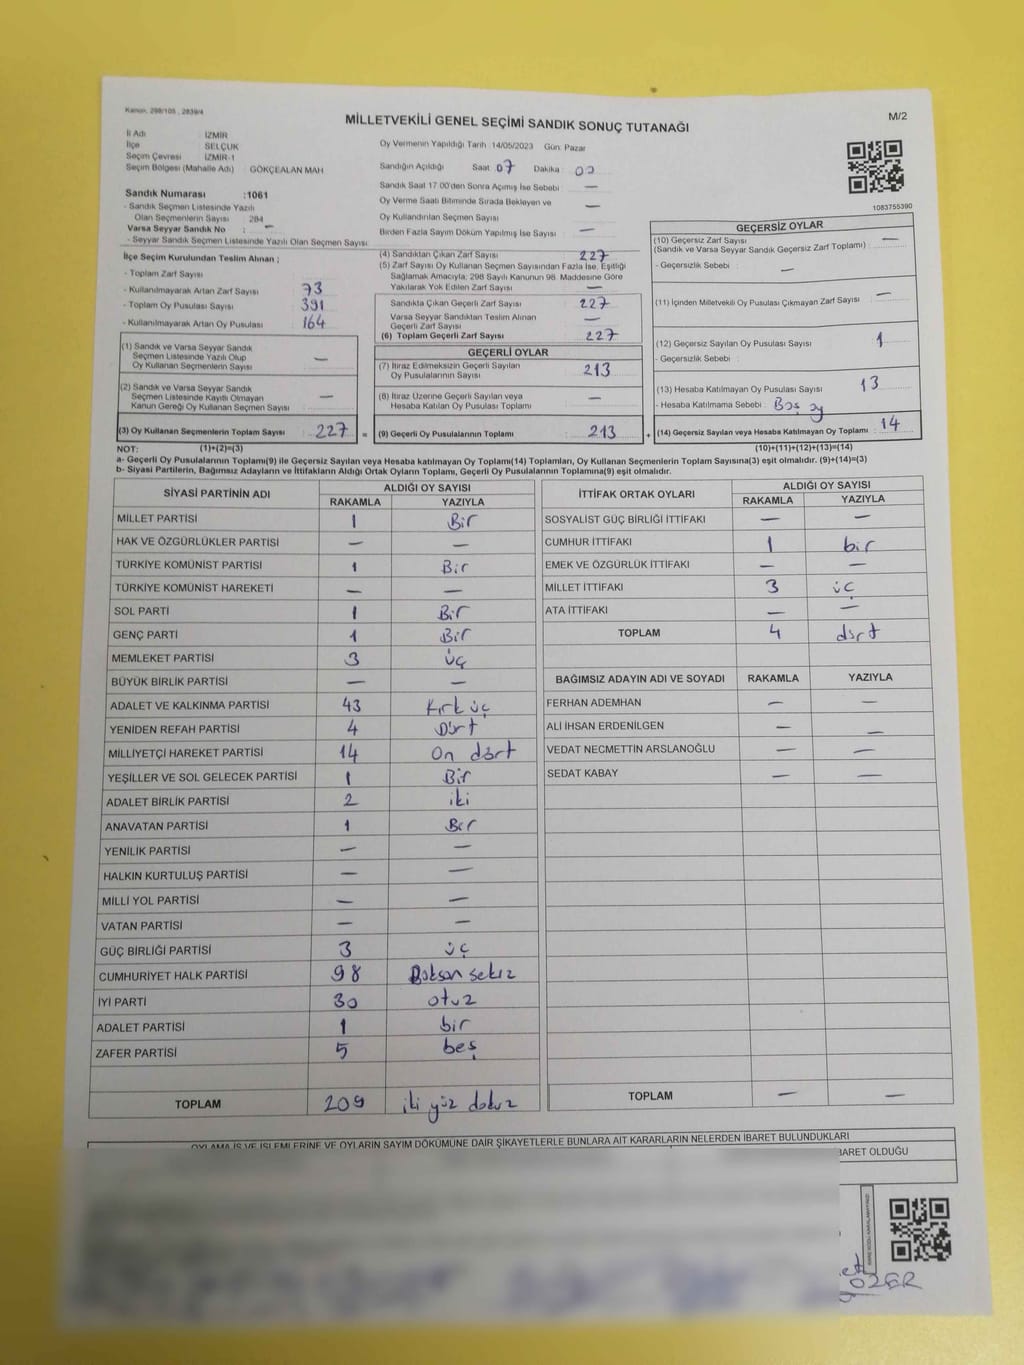 Kanun, 298/105 , 2839/4
MİLLETVEKİLİ GENEL SEÇİMİ SANDIK SONUÇ TUTANAĞI
M/2
İl Adı İZMİR
İlçe SELÇUK
Seçim Çevresi İZMİR-1
Seçim Bölgesi (Mahalle Adı) GÖKÇEALAN MAH
Sandık Numarası :1061
- Sandık Seçmen Listesinde Yazılı
Olan Seçmenlerin Sayısı : 284
Varsa Seyyar Sandık No : —
- Seyyar Sandık Seçmen Listesinde Yazılı Olan Seçmen Sayısı
İlçe Seçim Kurulundan Teslim Alınan ;
- Toplam Zarf Sayısı
- Kullanılmayarak Artan Zarf Sayısı 73
- Toplam Oy Pusulası Sayısı 391
- Kullanılmayarak Artan Oy Pusulası 164
(1) Sandık ve Varsa Seyyar Sandık
Seçmen Listesinde Yazılı Olup
Oy Kullanan Seçmenlerin Sayısı —
(2) Sandık ve Varsa Seyyar Sandık
Seçmen Listesinde Kayıtlı Olmayan
Kanun Gereği Oy Kullanan Seçmen Sayısı —
(3) Oy Kullanan Seçmenlerin Toplam Sayısı 227 =
Oy Vermenin Yapıldığı Tarih 14/05/2023 Gün: Pazar
Sandığın Açıldığı Saat 07 Dakika 00
Sandık Saat 17.00'den Sonra Açılmış İse Sebebi —
Oy Verme Saati Bitiminde Sırada Bekleyen ve
Oy Kullandırılan Seçmen Sayısı —
Birden Fazla Sayım Döküm Yapılmış İse Sayısı —
(4) Sandıktan Çıkan Zarf Sayısı 227
(5) Zarf Sayısı Oy Kullanan Seçmen Sayısından Fazla İse, Eşitliği
Sağlamak Amacıyla; 298 Sayılı Kanunun 98. Maddesine Göre
Yakılarak Yok Edilen Zarf Sayısı —
Sandıkta Çıkan Geçerli Zarf Sayısı 227
Varsa Seyyar Sandıktan Teslim Alınan
Geçerli Zarf Sayısı —
(6) Toplam Geçerli Zarf Sayısı 227
GEÇERLİ OYLAR
(7) İtiraz Edilmeksizin Geçerli Sayılan
Oy Pusulalarının Sayısı 213
(8) İtiraz Üzerine Geçerli Sayılan veya
Hesaba Katılan Oy Pusulası Toplamı —
(9) Geçerli Oy Pusulalarının Toplamı 213 +
1083755390
GEÇERSİZ OYLAR
(10) Geçersiz Zarf Sayısı
(Sandık ve Varsa Seyyar Sandık Geçersiz Zarf Toplamı) : —
- Geçersizlik Sebebi : —
(11) İçinden Milletvekili Oy Pusulası Çıkmayan Zarf Sayısı —
(12) Geçersiz Sayılan Oy Pusulası Sayısı 1
- Geçersizlik Sebebi :
(13) Hesaba Katılmayan Oy Pusulası Sayısı 13
- Hesaba Katılmama Sebebi : Boş oy
(14) Geçersiz Sayılan veya Hesaba Katılmayan Oy Toplamı : 14
NOT: (1)+(2)=(3) (10)+(11)+(12)+(13)=(14)
a- Geçerli Oy Pusulalarının Toplamı(9) ile Geçersiz Sayılan veya Hesaba katılmayan Oy Toplamı(14) Toplamları, Oy Kullanan Seçmenlerin Toplam Sayısına(3) eşit olmalıdır. (9)+(14)=(3)
b- Siyasi Partilerin, Bağımsız Adayların ve İttifakların Aldığı Ortak Oyların Toplamı, Geçerli Oy Pusulalarının Toplamına(9) eşit olmalıdır.
SİYASİ PARTİNİN ADI ALDIĞI OY SAYISI
RAKAMLA YAZIYLA
MİLLET PARTİSİ 1 Bir
HAK VE ÖZGÜRLÜKLER PARTİSİ — —
TÜRKİYE KOMÜNİST PARTİSİ 1 Bir
TÜRKİYE KOMÜNİST HAREKETİ — —
SOL PARTİ 1 Bir
GENÇ PARTİ 1 Bir
MEMLEKET PARTİSİ 3 üç
BÜYÜK BİRLİK PARTİSİ — —
ADALET VE KALKINMA PARTİSİ 43 Kırk üç
YENİDEN REFAH PARTİSİ 4 Dört
MİLLİYETÇİ HAREKET PARTİSİ 14 On dört
YEŞİLLER VE SOL GELECEK PARTİSİ 1 Bir
ADALET BİRLİK PARTİSİ 2 iki
ANAVATAN PARTİSİ 1 Bir
YENİLİK PARTİSİ — —
HALKIN KURTULUŞ PARTİSİ — —
MİLLİ YOL PARTİSİ — —
VATAN PARTİSİ — —
GÜÇ BİRLİĞİ PARTİSİ 3 üç
CUMHURİYET HALK PARTİSİ 98 Doksan sekiz
İYİ PARTİ 30 otuz
ADALET PARTİSİ 1 bir
ZAFER PARTİSİ 5 beş
TOPLAM 209 iki yüz dokuz
İTTİFAK ORTAK OYLARI ALDIĞI OY SAYISI
RAKAMLA YAZIYLA
SOSYALİST GÜÇ BİRLİĞİ İTTİFAKI — —
CUMHUR İTTİFAKI 1 bir
EMEK VE ÖZGÜRLÜK İTTİFAKI — —
MİLLET İTTİFAKI 3 üç
ATA İTTİFAKI — —
TOPLAM 4 dört
BAĞIMSIZ ADAYIN ADI VE SOYADI RAKAMLA YAZIYLA
FERHAN ADEMHAN — —
ALİ İHSAN ERDENİLGEN — —
VEDAT NECMETTİN ARSLANOĞLU — —
SEDAT KABAY — —
TOPLAM — —
OYLAMA İŞ VE İŞLEMLERİNE VE OYLARIN SAYIM DÖKÜMÜNE DAİR ŞİKAYETLERLE BUNLARA AİT KARARLARIN NELERDEN İBARET BULUNDUKLARI
İBARET OLDUĞU
ÖZER